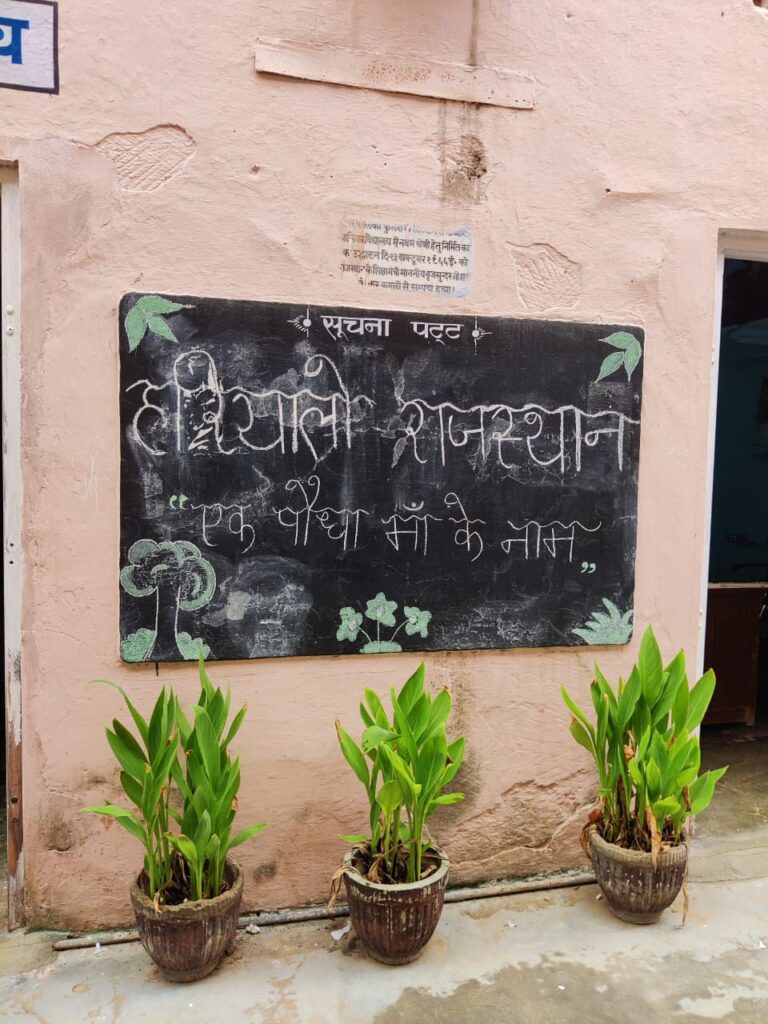 य
विद्यालय में नवम श्रेणी हेतु निर्मित
उद्घाटन दि. १३ अक्टूबर १९६६ई॰ को
के शिक्षामंत्री माननीय बृजसुन्दर
सूचना पट्ट
हरियालो राजस्थान
"एक पौधा माँ के नाम"